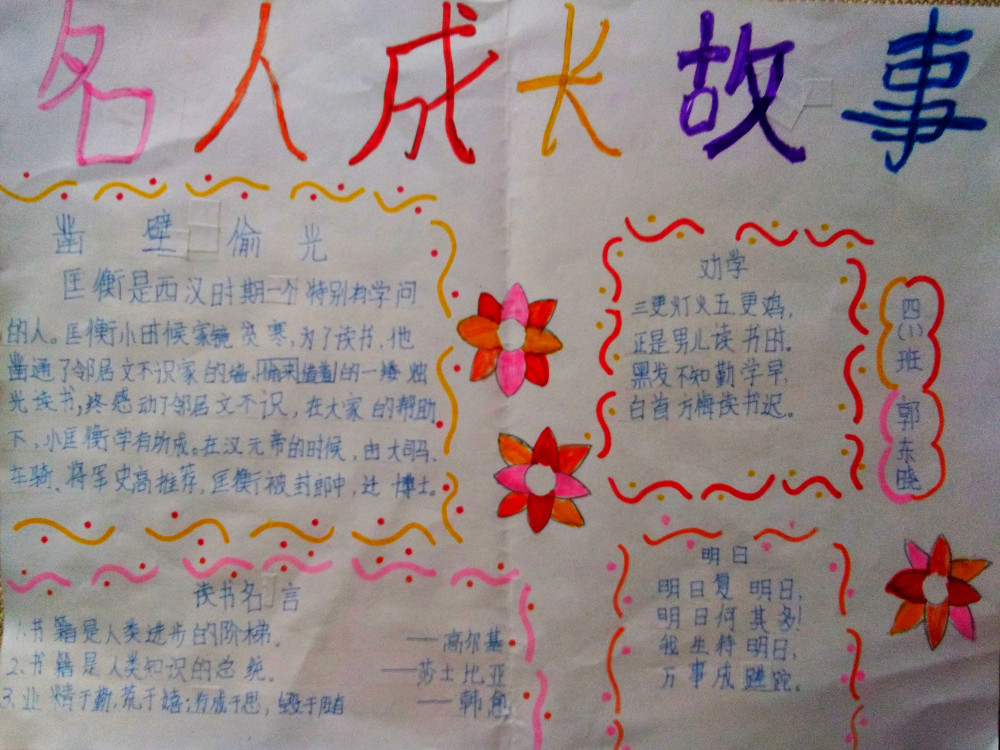 名人成长故事
凿壁偷光
匡衡是西汉时期一个特别有学问
的人。匡衡小时候家境贫寒,为了读书,他
凿通了邻居文不识家的墙,借着的一缕烛
光读书,终感动了邻居文不识,在大家的帮助
下,小匡衡学有所成。在汉元帝的时候,由大司马、
车骑、将军史高推荐,匡衡被封郎中,迁博士。
读书名言
1.书籍是人类进步的阶梯。——高尔基
2、书籍是人类知识的总统。——莎士比亚
3、业精于勤,荒于嬉;行成于思,毁于随——韩愈
劝学
三更灯火五更鸡,
正是男儿读书时。
黑发不知勤学早,
白首方悔读书迟。
四(1)班 郭东晓
明日
明日复明日,
明日何其多!
我生待明日,
万事成蹉跎。